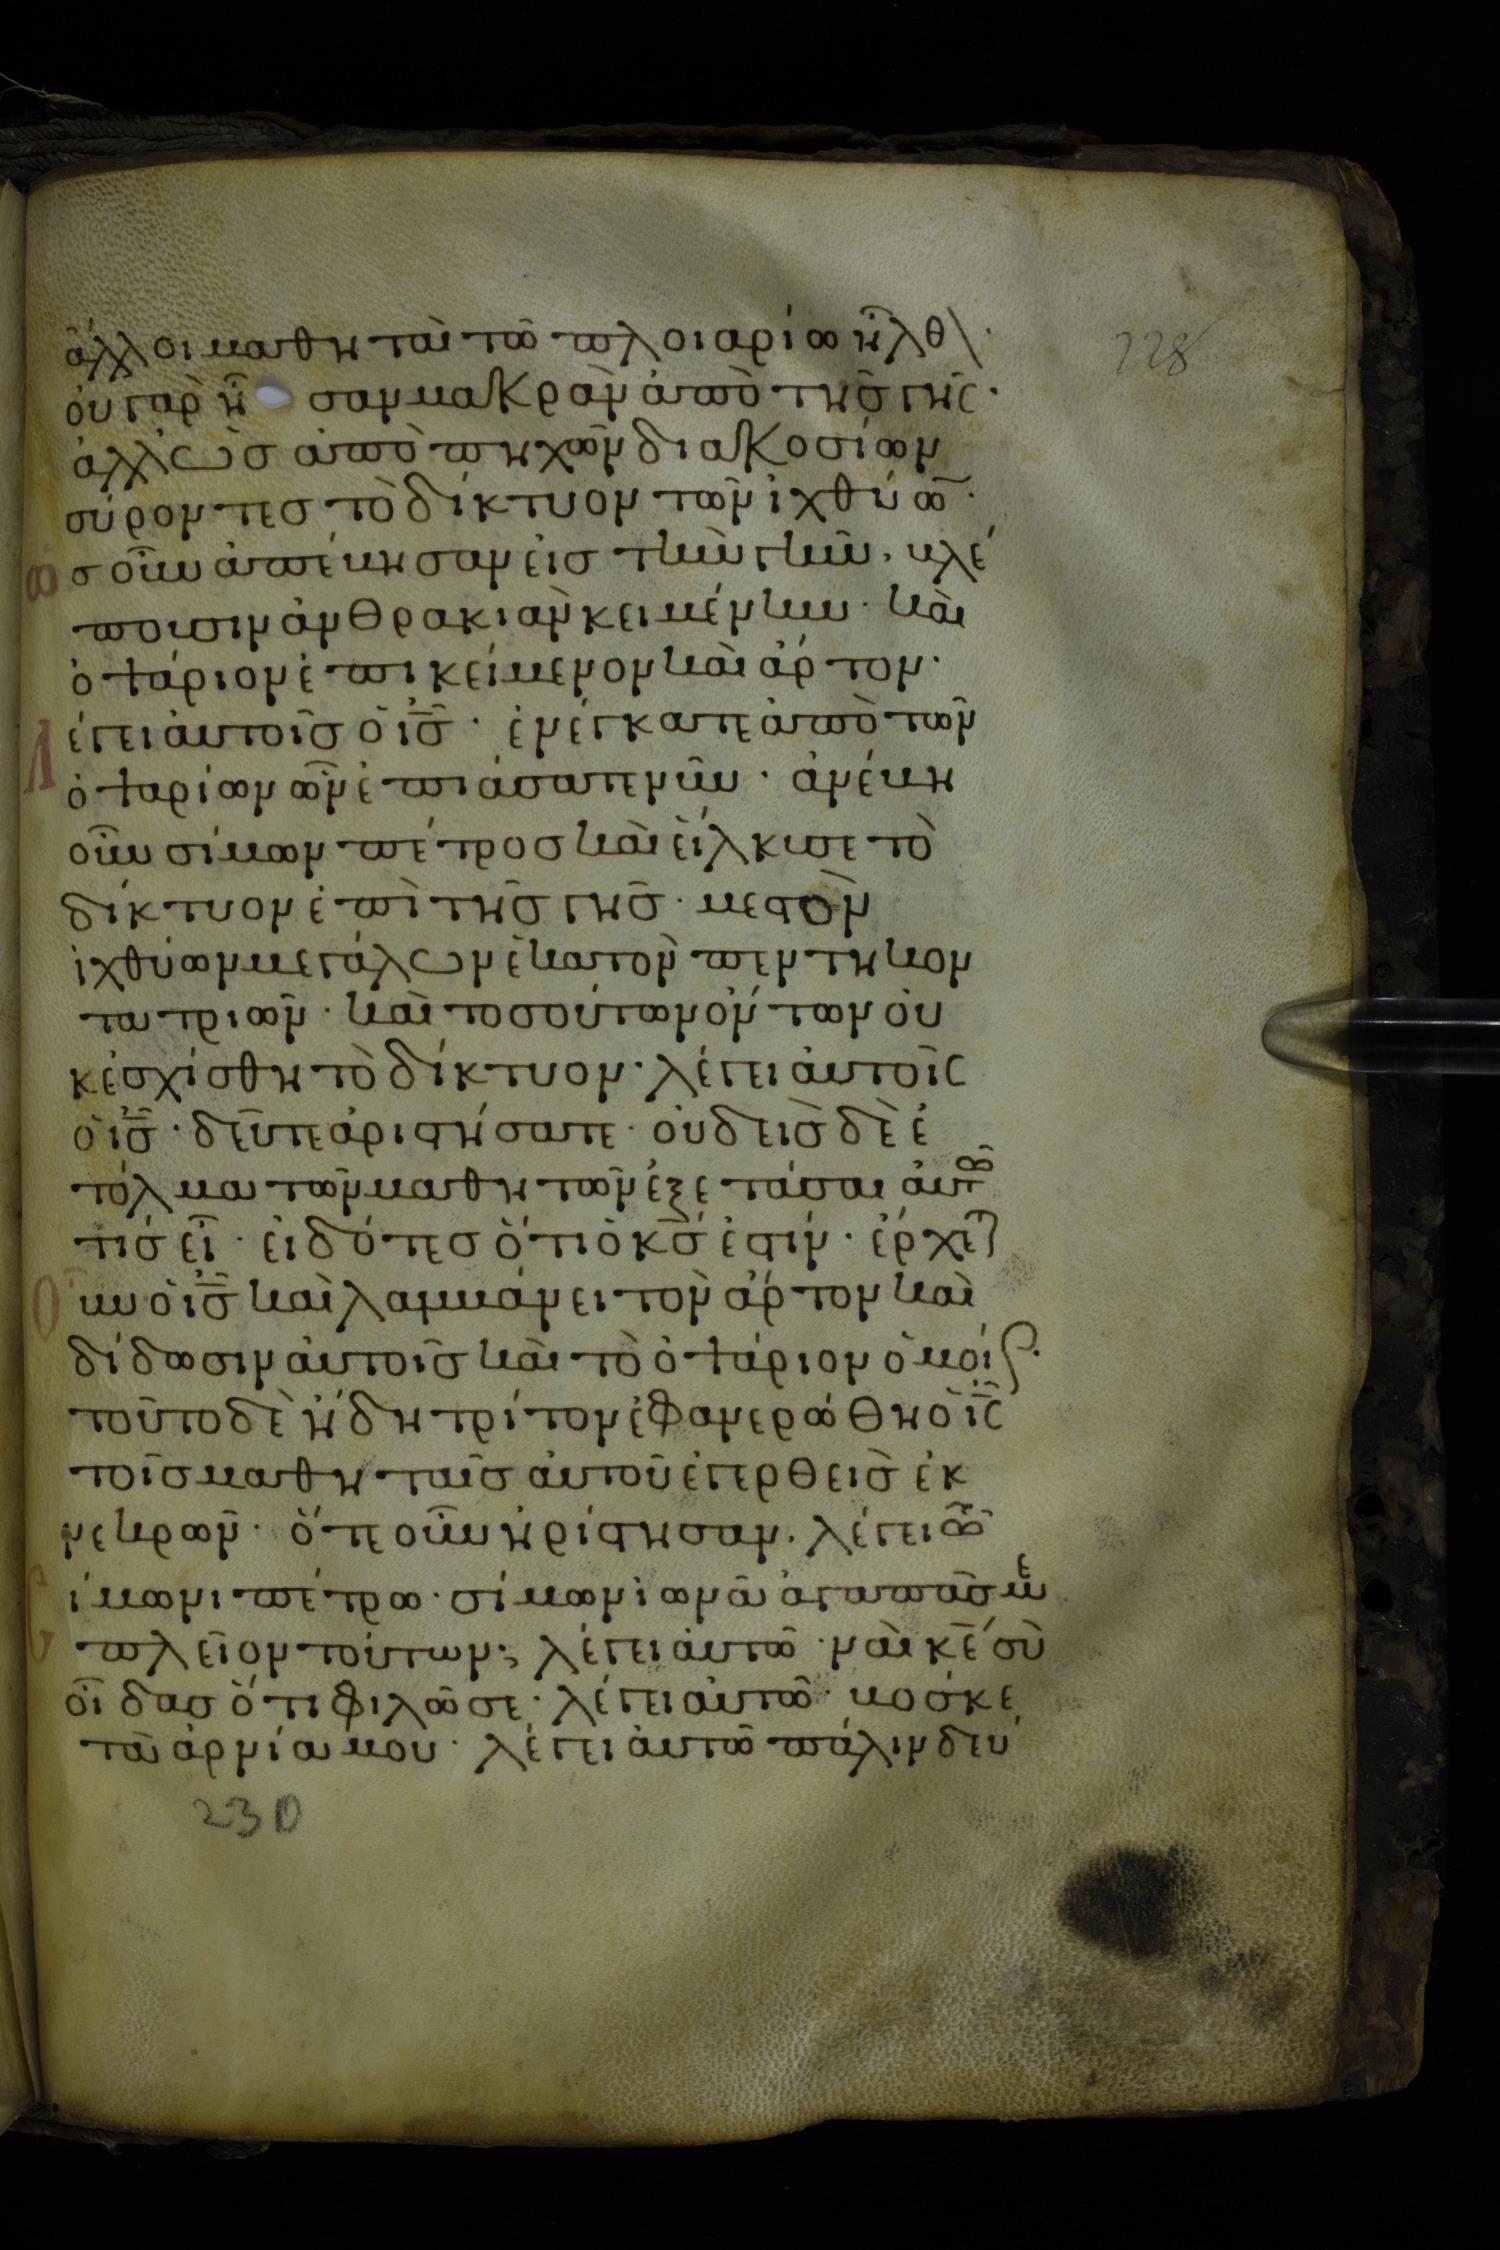 ἄλλοι μαθηταὶ τῶ πλοιαρίω ἦλθ\· 228
οὐ γὰρ ἦ σαν μακρὰν ἀπὸ τῆς γῆς·
ἀλλ ὡς ἀπὸ πηχῶν διακοσίων
σύροντες τὸ δίκτυον τῶν ἰχθύω̅·
ὡς οὖν ἀπέβησαν εἰς τὴν γῆν, βλέ
πουσιν ἀνθρακιὰν κειμένην· καὶ
ὀψάριον ἐπικείμενον καὶ ἄρτον·
Λέγει αὐτοῖς ὁ ι̅ς̅· ἐνέγκατε ἀπὸ τῶν
ὀψαρίων ὧν ἐπιάσατε νῦν· ἀνέβη
οὖν σίμων πέτρος καὶ εἵλκυσε τὸ
δίκτυον ἐπὶ τῆς γῆς· μεστὸν
ἰχθύων μεγάλων ἑκατὸν πεντήκον
τα τριῶν· καὶ τοσούτων ὄντων οὐ
κ ἐσχίσθη τὸ δίκτυον· λέγει αὐτοῖς
ὁ ι̅ς̅· δεῦτε ἀριστήσατε· οὐδεὶς δὲ ἐ
τόλμα τῶν μαθητῶν ἐξετάσαι αὐτ
τίς εἶ· εἰδότες ὅτι ὁ κ̅ς̅ ἐστίν· ἔρχε
Οὖν ὁ ι̅ς̅ καὶ λαμβάνει τὸν ἄρτον καὶ
δίδωσιν αὐτοῖς καὶ τὸ ὀψάριον ὁμοί·
τοῦτο δὲ ἤδη τρίτον ἐφανερώθη ὁ ι̅ς̅
τοῖς μαθηταῖς αὐτοῦ ἐγερθεὶς ἐκ
νεκρῶν· ὅτε οὖν ἠρίστησαν, λέγει
Σίμωνι πέτρω· σίμων ἰωνᾶ ἀγαπᾶς με
πλεῖον τούτων; λέγει αὐτῶ· ναὶ κ̅ε̅ σὺ
οἶδας ὅτι φιλῶ σε· λέγει αὐτῶ· βόσκε
τὰ ἀρνία μου· λέγει αὐτῶ πάλιν δεύ
230